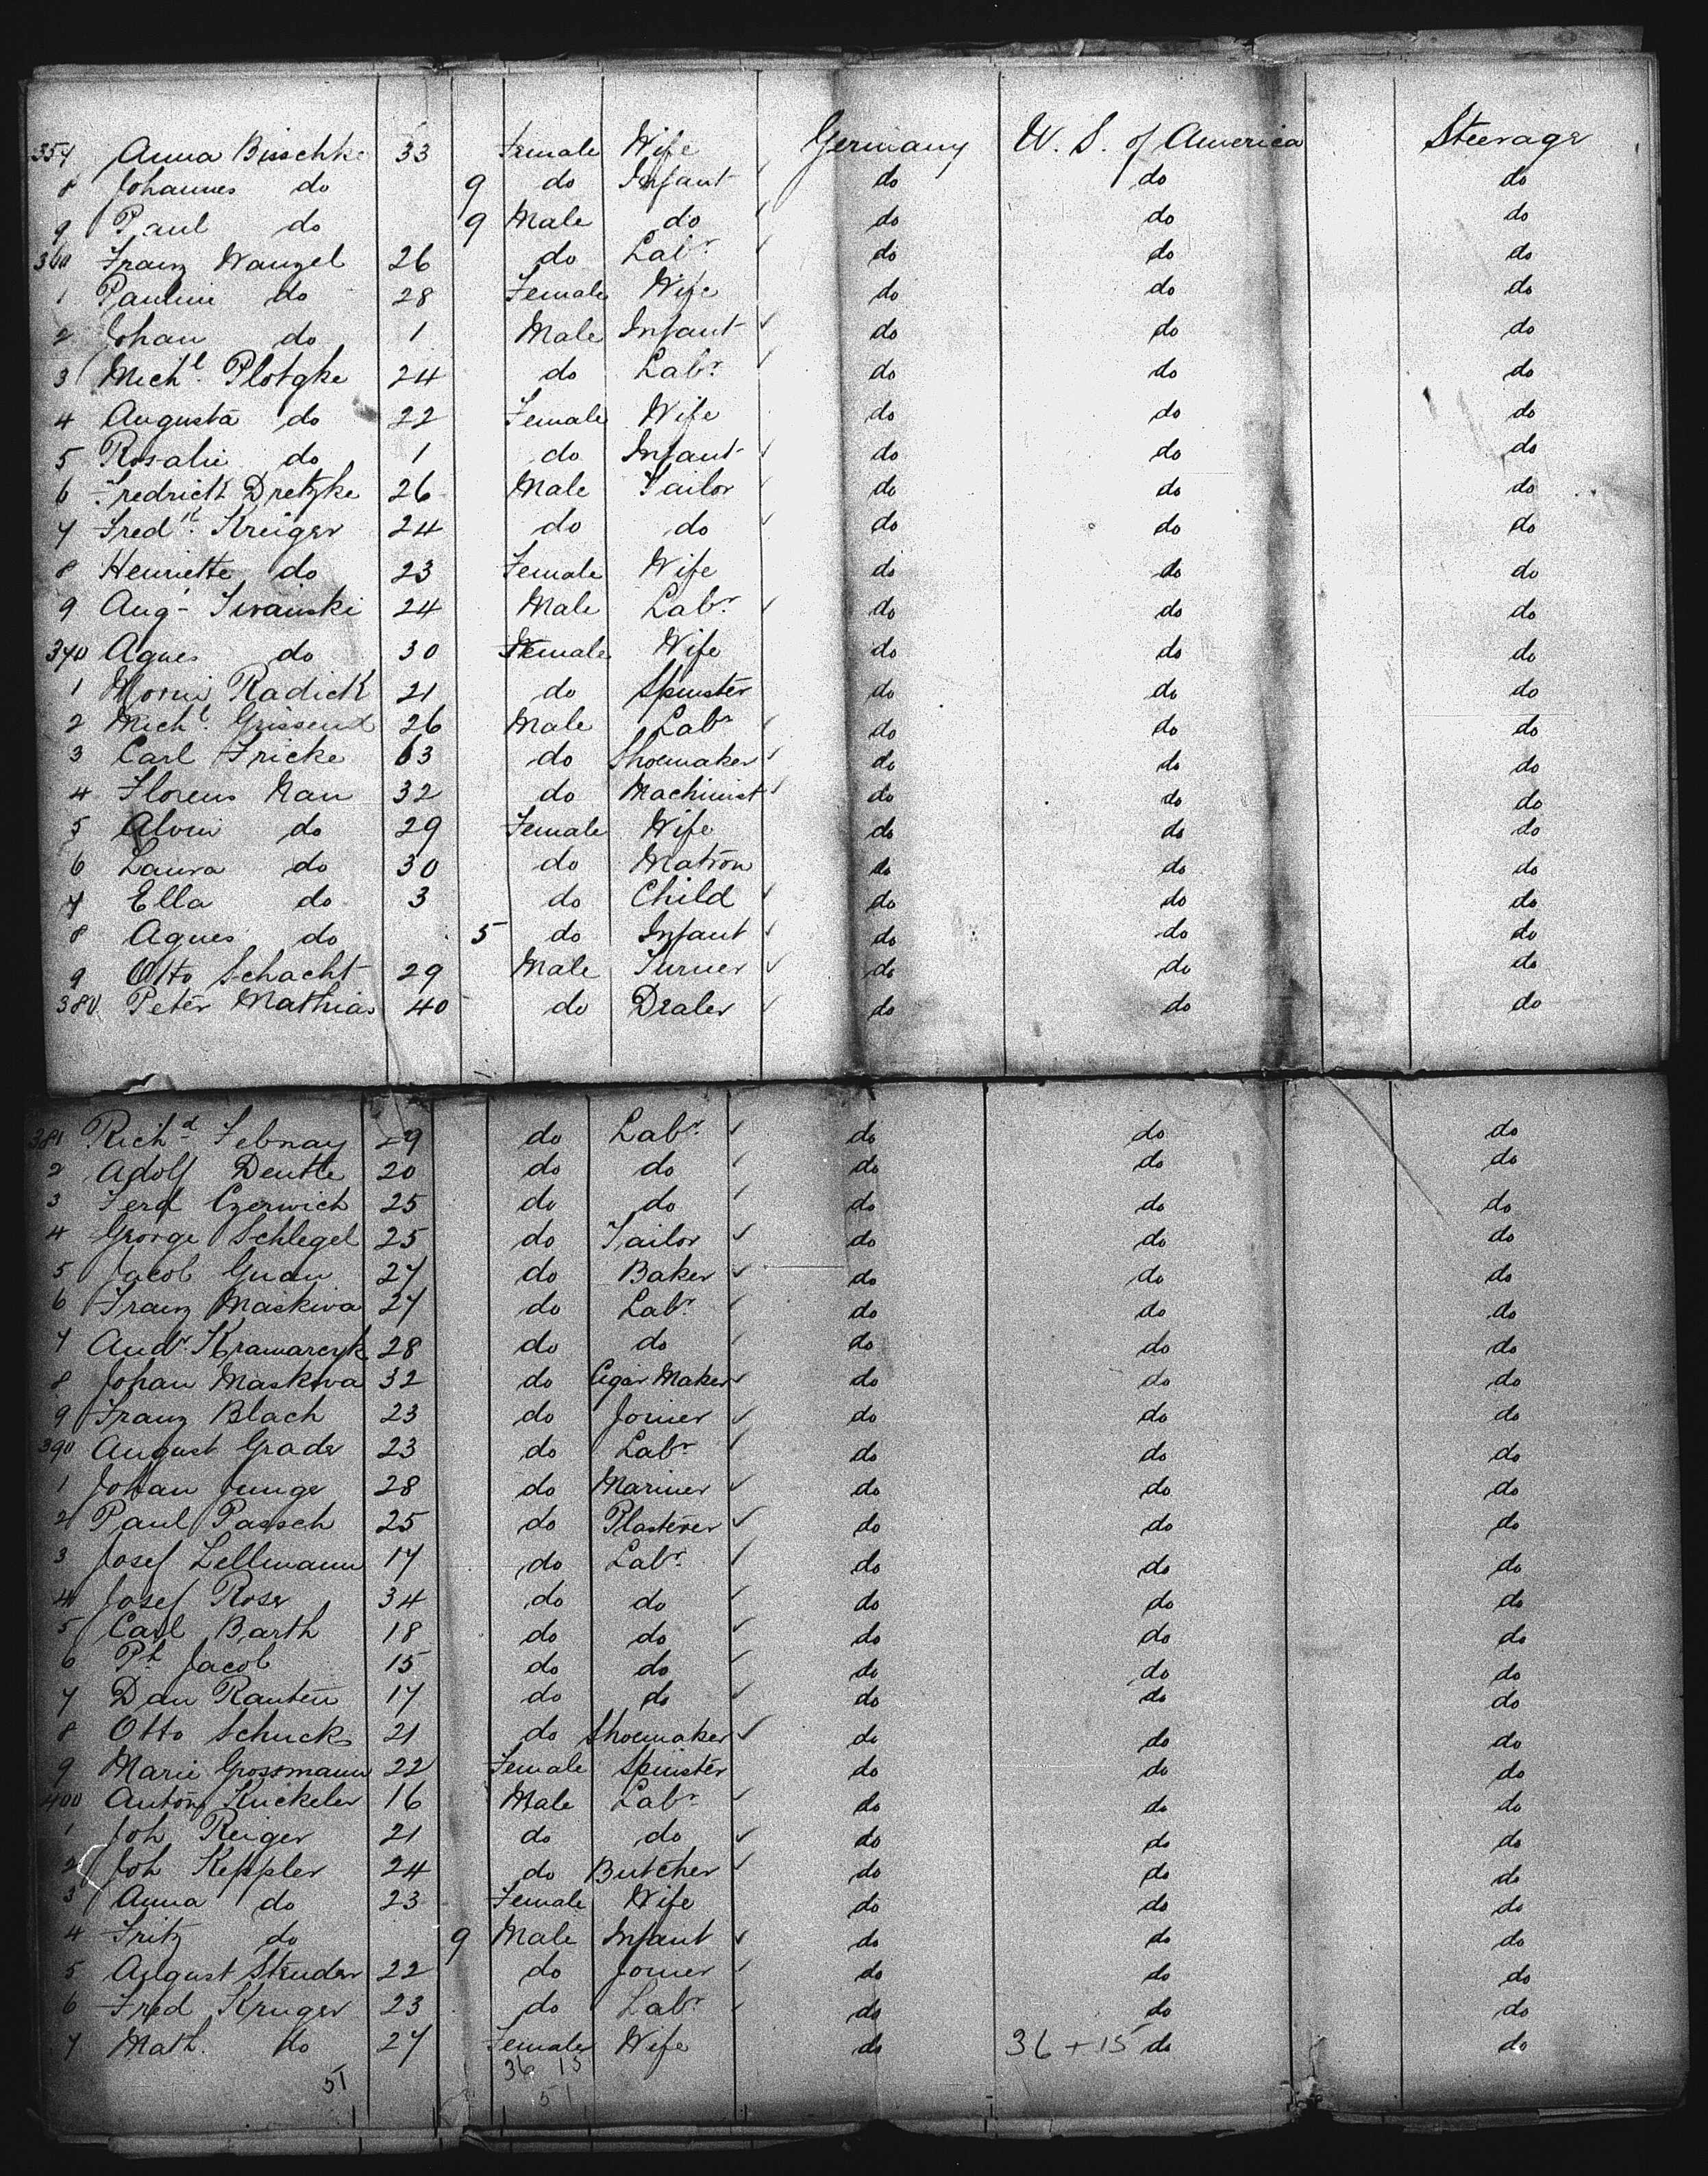 357 Anna Bisschke 33 Female Wife Germany U. S. of America Steerage
8 Johannes do 9 do Infant do do do
9 Paul do 9 Male do do do do
360 Franz Wanzel 26 do Labr. do do do
1 Pauline do 28 Female Wife do do do
2 Johan do 1 Male Infant do do do
3 Michl. Plotzke 24 do Labr. do do do
4 Augusta do 22 Female Wife do do do
5 Rosalie do 1 do Infant do do do
6 Fredrick Dretzke 26 Male Tailor do do do
7 Fredk. Kreiger 24 do do do do do
8 Henriette do 23 Female Wife do do do
9 Aug Iwainski 24 Male Labr. do do do
370 Agnes do 30 Female Wife do do do
1 Radick 21 do Spinster do do do
2 Michl. 26 Male Labr do do do
3 Carl Fricke 63 do Shoemaker do do do
4 Florens Nau 32 do Machinist do do do
5 Alvin do 29 Female Wife do do do
6 Laura do 30 do Matron do do do
7 Ella do 3 do Child do do do
8 Agnes do 5 do Infant do do do
9 Otto Schacht 29 Male Turner do do do
380 Peter Mathias 40 do Dealer do do do
381 Richd Febnay 29 do Labr. do do do
2 Adolf 20 do do do do do
3 Ferd Czerwich 25 do do do do do
4 George Schlegel 25 do Tailor do do do
5 Jacob 27 do Baker do do do
6 Franz Maskwa 27 do Labr. do do do
7 Andr. Krawarcyk 28 do do do do do
8 Johan Maskwa 32 do Cigar Maker do do do
9 Franz Blach 23 do Joiner do do do
390 August Grade 23 do Labr do do do
1 Johan Junge 28 do Mariner do do do
2 Paul Paasch 25 do Plasterer do do do
3 Josef Lellmann 17 do Labr. do do do
4 Josef Rose 34 do do do do do
5 Carl Barth 18 do do do do do
6 Pt Jacob 15 do do do do do
7 Dan Rauten 17 do do do do do
8 Otto Schuck 21 do Shoemaker do do do
9 Marie Grossmann 22 Female Spinster do do do
400 Anton Kuckeler 16 Male Labr do do do
1 Joh Reiger 21 do do do do do
2 Joh Keppler 24 do Butcher do do do
3 Anna do 23 Female Wife do do do
4 Fritz do 9 Male Infant do do do
5 August Struder 22 do Joiner do do do
6 Fred Kruger 23 do Labr do do do
7 Math. do 27 Female Wife do 36 + 15 do do
51 36 15
51